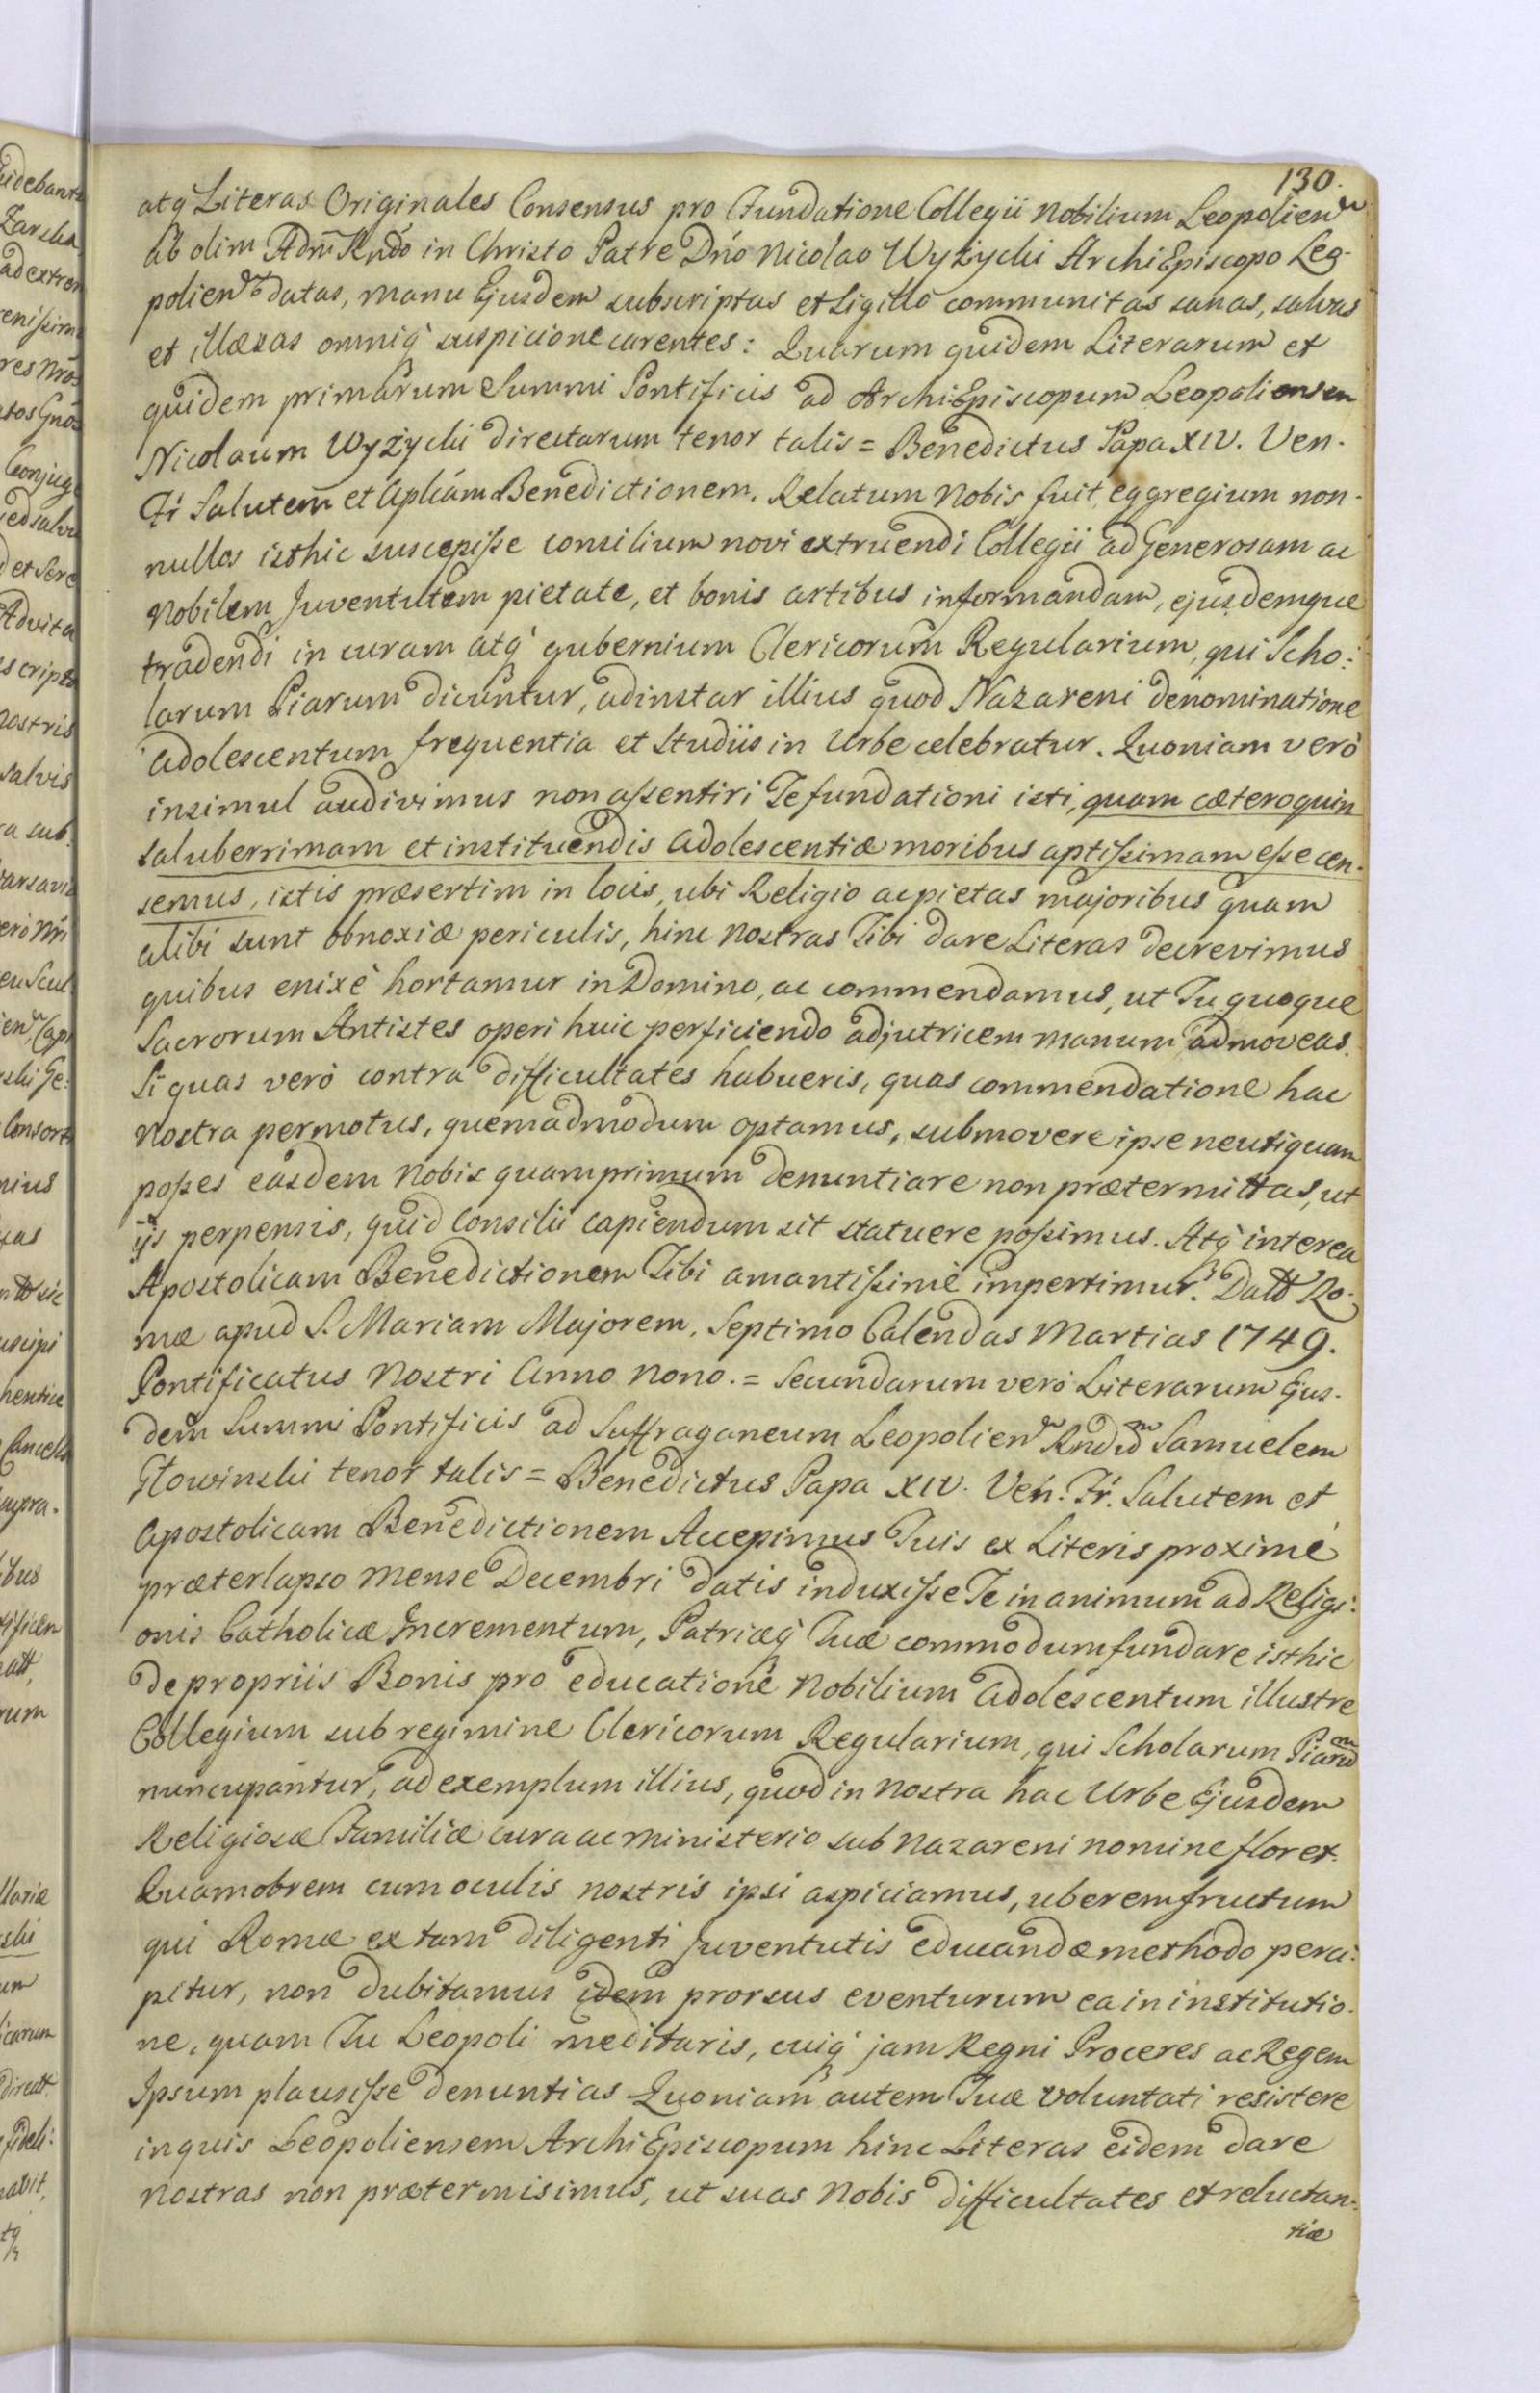 130.
atq̀ Literas Originales Consensus pro Fundatione Collegii Nobilium Leopolien
ab olim Adm̃ Rndo in Christo Patre Dńo Nicolao Wyżycki ArchiEpiscopo Leo-
polien datas, manu Ejusdem subscriptas et Sigillo communitas sanas, salvas
et illæsas omniq̀ suspicione carentes: Quarum quidem Literarum et
quidem primarum Summi Pontificis ad ArchiEpiscopum Leopoliensem
Nicolaum Wyżycki directarum tenor talis = Benedictus Papa XIV. Ven.
Fr̀ Salutem et Aplicám Benedictionem. Relatum Nobis fuit, eggregium non-
nullos isthic suscepiſse consilium novi extruendi Collegii ad Generosam ac
Nobilem Juventutem pietate, et bonis artibus informandam, ejusdemque
tradendi in curam atq̀ gubernium Clericorum Regularium, qui Scho:
larum Piarum dicuntur, adinstar illius quod Nazareni denominatione
adolescentum frequentia et Studiis in Urbe celebratur. Quoniam verò
insimul audivimus non aſsentiri Te fundationi isti, quam cæteroquin
saluberrimam et instituendis adolescentiæ moribus aptiſsimam eſse cen-
semus, istis præsertim in locis, ubi Religio ac pietas majoribus quam
alibi sunt obnoxiæ periculis, hinc nostras Tibi dare Literas decrevimus
quibus enixè hortamur in Domino, ac commendamus, ut Tu quoque
Sacrorum Antistes operi huic perficiendo adjutricem manum admoveas.
Si quas verò contra difficultates habueris, quas commendatione hac
Nostra permotus, quemadmodum optamus, submovere ipse neutiquam
poſses easdem Nobis quamprimum denuntiare non prætermittas, ut
ijs perpensis, quid Consilii capiendum sit statuere poſsimus. Atq̀ interea
Apostolicam Benedictionem Tibi amantiſsimè impertimur. Datt Ro-
mæ apud S. Mariam Majorem, Septimo Calendas Martias 1749.
Pontificatus Nostri Anno Nono. = Secundarum verò Literarum Ejus-
dem Summi Pontificis ad Suffraganeum Leopolien Rndum Samuelem
Głowinski tenor talis = Benedictus Papa XIV. Veń. Fŕ. Salutem et
Apostolicam Benedictionem Accepimus Tuis ex Literis proximè
præterlapso Mense Decembri datis induxiſse Te in animum ad Religi:
onis Catholicæ Incrementum, Patriæq̀ Tuæ commodum fundare isthic
de propriis Bonis pro educatione Nobilium Adolescentum illustre
Collegium sub regimine Clericorum Regularium, qui Scholarum Piarum
nuncupantur, ad exemplum illius, quod in Nostra hac Urbe Ejusdem
Religiosæ Familiæ cura ac ministerio sub Nazareni nomine floret.
Quamobrem cum oculis nostris ipsi aspiciamus, uberem fructum
qui Romæ ex tam diligenti Juventutis educandæ methodo perci:
pitur, non dubitamus idem prorsus eventurum ea in institutio-
ne, quam Tu Leopoli meditaris, cuiq̀ jam Regni Proceres ac Regem
Ipsum plausiſse denuntias Quoniam autem Tuæ voluntati resistere
inquis Leopoliensem ArchiEpiscopum hinc Literas eidem dare
Nostras non prætermisimus, ut suas Nobis difficultates et reluctan-
tiæ